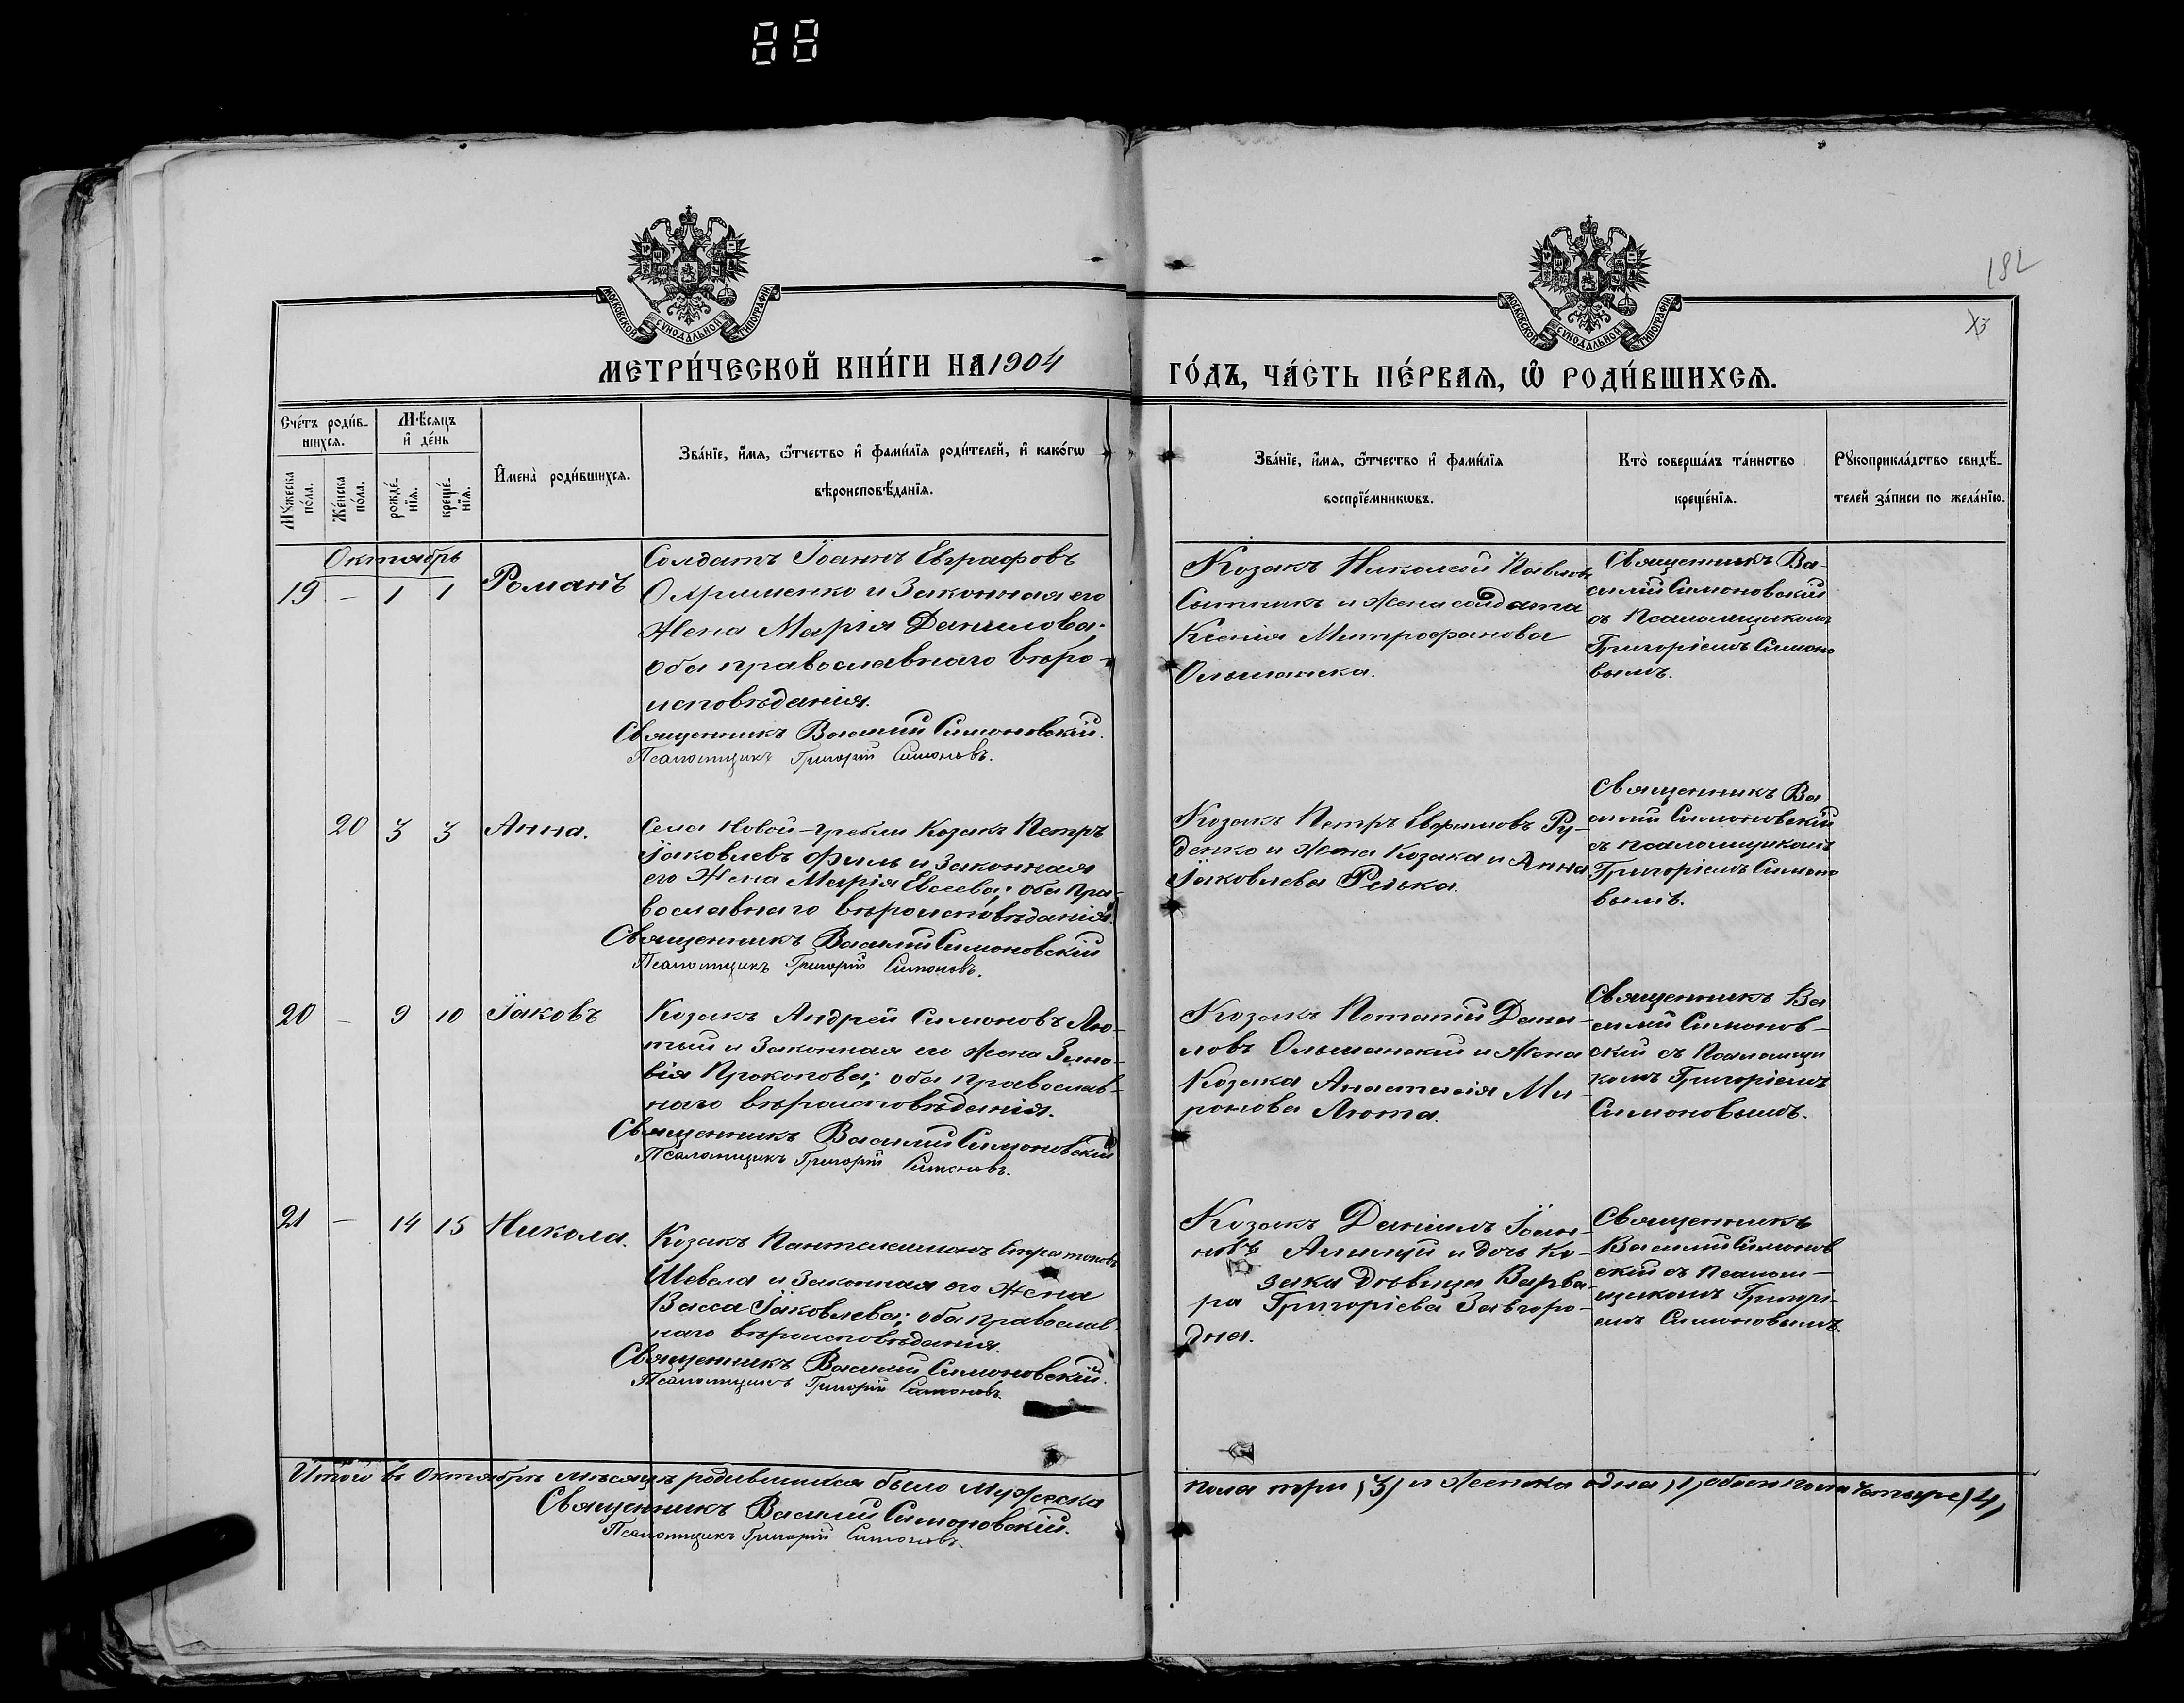 182
МОСКОВСКОЙ СУНОДАЛЬНОЙ ТИПОГРАФІИ
МОСКОВСКОЙ СУНОДАЛЬНОЙ ТИПОГРАФІИ
МЕТРИ́ЧЕСКОЙ КНИ́ГИ НА 1904
ГО́ДЪ, ЧА́СТЬ ПЕ́РВАЯ, Ѡ РОДИ́ВШИХСЯ.
Сче́тъ роди́в-
шихся.
Мѣ́сяцъ
и҆ де́нь
Мꙋ́жеска
по́ла.
Же́нска
по́ла.
рожде́-
нїя.
креще́-
нїя.
И҆мена̀ роди́вшихся.
Зва́нїе, и҆́мя, ѻ҆́тчество и҆ фами́лїя роди́телей, и҆ како́гѡ
вѣроисповѣ́данїя.
Зва́нїе, и҆́мя, ѻ҆́тчество и҆ фами́лїя
воспрїе́мникѡвъ.
Кто̀ соверша́лъ та́инство
креще́нїя.
Рꙋкоприкла́дство свидѣ́-
телей за́писи по жела́нїю.
Октябрь
19 — 1 1 Романъ
Солдатъ Іоаннъ Евграфовъ
Охрименко и Законная его
Жена Марія Данилова;
оба православнаго вѣро-
исповѣданія.
Священникъ Василій Симоновскій.
Псаломщикъ Григорій Симоновъ.
Козакъ Николай Павловъ
Сытникъ и жена солдата
Ксенія Митрофанова
Ольшанска.
Священникъ Ва-
силій Симоновскій
съ Псаломщикомъ
Григоріемъ Симоно
вымъ.
20 3 3 Анна.
Села Новой-Гребли Козакъ Петръ
Іаковлевъ Филь и Законная
его Жена Марія Евсеева; оба пра-
вославнаго вѣроисповѣданія.
Священникъ Василій Симоновскій
Псаломщикъ Григорій Симоновъ.
Козакъ Петръ Ефимовъ Ру-
денко и жена Козака и Анна
Іаковлева Редька.
Священникъ Ва
силій Симоновскій
съ псаломщикомъ
Григоріемъ Симоно
вымъ.
20 — 9 10 Іаковъ
Козакъ Андрей Симоновъ Лю-
тый и Законная его жена Зино-
вія Прокопова; оба православ-
наго вѣроисповѣданія.
Священникъ Василій Симоновскій
Псаломщикъ Григорій Симоновъ.
Козакъ Потапій Дани-
ловъ Ольшанскій и жена
Козака Анастасія Ми
ронова Люта.
Священникъ Ва
силій Симонов-
скій съ Псаломщи
комъ Григоріемъ
Симоновымъ.
21 — 14 15 Никола.
Козакъ Пантелеимонъ Стратоновъ
Шевела и Законная его Жена
Васса Іаковлева; оба православ-
наго вѣроисповѣданія.
Священникъ Василій Симоновскій.
Псаломщикъ Григорій Симоновъ.
Козакъ Даніилъ Іоан-
новъ и дочь Ко-
зака дѣвица Варва-
ра Григоріева Завгоро-
дна.
Священникъ
Василій Симонов
скій съ Псалом-
щикомъ Григорі-
емъ Симоновымъ.
Итого въ Октябрѣ мѣсяцѣ родившихся было Мужеска
пола три (3) и Женска одна (1) обоего пола четыре (4)
Священникъ Василій Симоновскій.
Псаломщикъ Григорій Симоновъ.